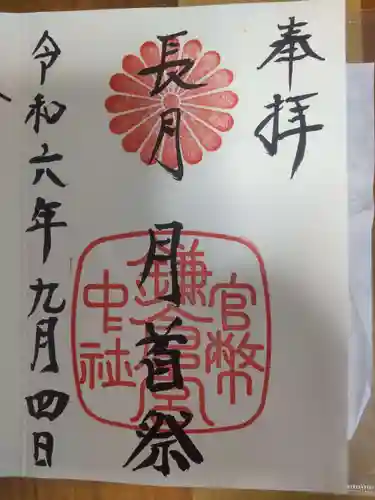 奉拝
長月
月首祭
官幣
鎌倉宮
中社
令和六年九月四日